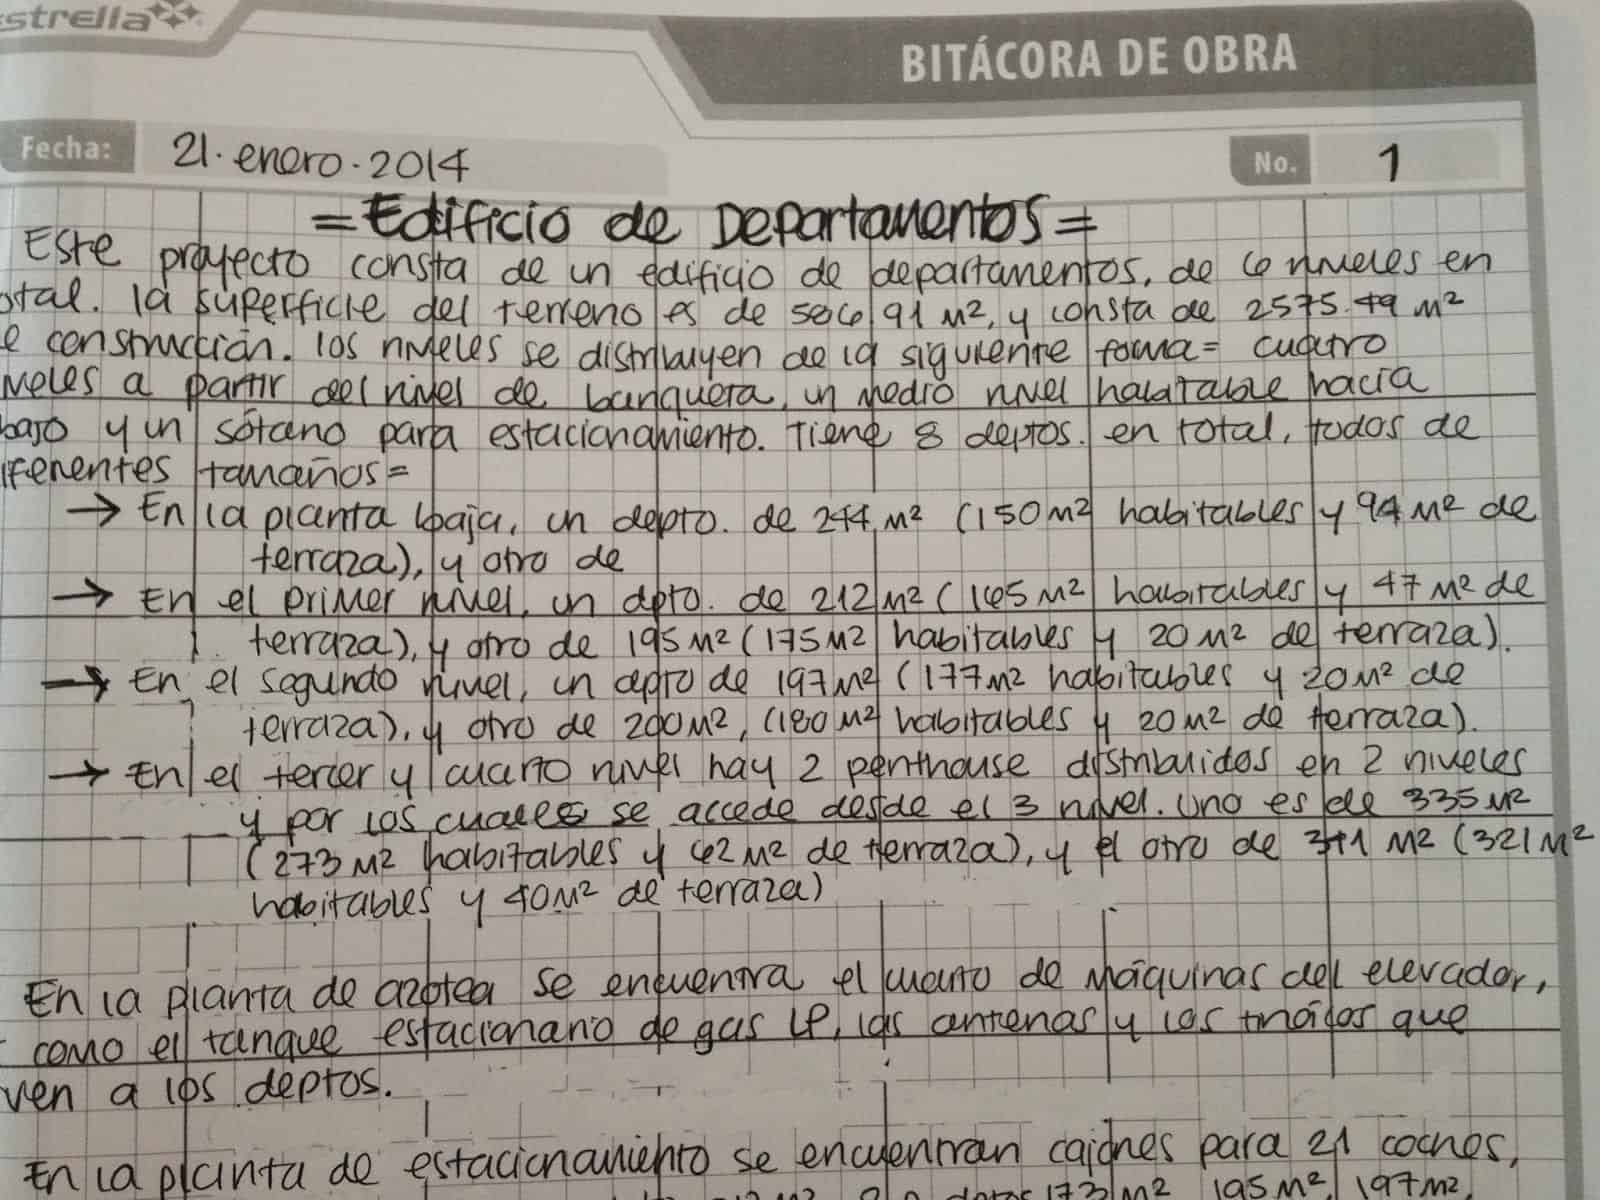 strella
BITÁCORA DE OBRA
Fecha: 21.enero.2014
No. 1
=Edificio de Departamentos=
Este proyecto consta de un edificio de departamentos, de 6 niveles en
otal. la superficie del terreno es de 586.91 m², y consta de 2575.49 m²
e construcción. los niveles se distribuyen de la siguiente forma= cuatro
veles a partir del nivel de banqueta, un medio nivel habitable hacia
bajo y un sótano para estacionamiento. Tiene 8 deptos. en total, todos de
iferentes tamaños=
→ En la planta baja, un depto. de 244 m² (150m² habitables y 94 m² de
terraza), y otro de
→ En el primer nivel, un dpto. de 212 m² (165 m² habitables y 47 m² de
terraza), y otro de 195 m² (175m2 habitables y 20 m² de terraza).
→ En el segundo nivel, un dpto de 197 m² (177m² habitables y 20m² de
terraza), y otro de 200m², (180 m² habitables y 20 m² de terraza).
→ En el tercer y cuarto nivel hay 2 penthouse distribuidos en 2 niveles
y por los cuales se accede desde el 3 nivel. Uno es de 335 m²
(273 m² habitables y 62 m² de terraza), y el otro de m² (321 m²
habitables y 40m² de terraza)
En la planta de azotea se encuentra el cuarto de máquinas del elevador,
como el tanque estacionario de gas LP, las antenas y los tinacos que
ven a los deptos.
En la planta de estacionamiento se encuentran cajones para 21 coches,
deptos 173 m², 195 m², 197m²